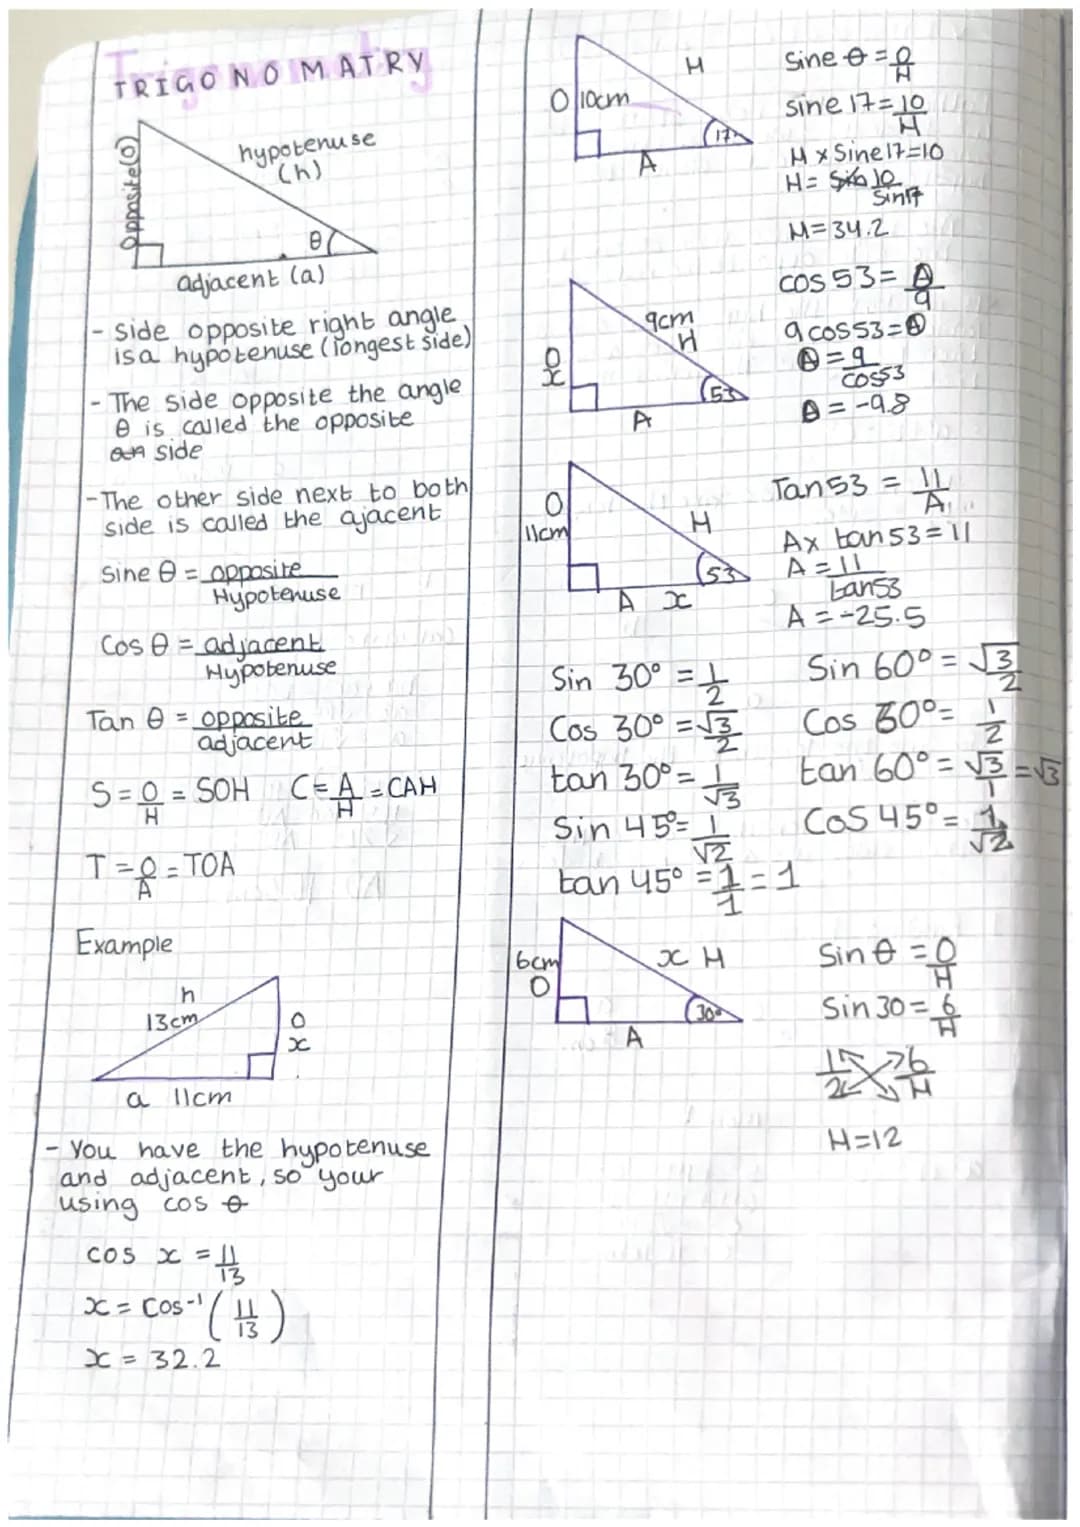 TRIGONOMATRY
opposite(o)
hypotenuse
(h)
θ
adjacent (a)
- Side opposite right angle
is a hypotenuse (longest side)
- The side opposite the angle
θ is called the opposite
side
- The other side next to both
side is called the ajacent
Sine θ = opposite
Hypotenuse
Cos θ = adjacent
Hypotenuse
Tan θ = opposite
adjacent
S = O/H = SOH C = A/H = CAH
T = O/A = TOA
Example
h
13cm
O
x
a 11cm
- You have the hypotenuse
and adjacent, so your
using cos θ
cos x = 11/13
x = cos⁻¹ (11/13)
x = 32.2
H
O 10cm
17
A
Sine θ = O/H
sine 17 = 10/H
H x Sine17=10
H = 10/Sin17
H = 34.2
9cm
H
O
x
53
A
cos 53 = A/9
9 cos53 = A
A = 9/cos53
A = -9.8
O
11cm
H
53
A x
Tan 53 = 11/A
A x tan 53 = 11
A = 11/tan53
A = -25.5
Sin 30° = 1/2 Sin 60° = √3/2
Cos 30° = √3/2 Cos 60° = 1/2
tan 30° = 1/√3 tan 60° = √3/1 = √3
Sin 45° = 1/√2 Cos 45° = 1/√2
tan 45° = 1/1 = 1
6cm
O
x H
30°
A
Sin θ = O/H
Sin 30 = 6/H
1/2 6/H
H = 12